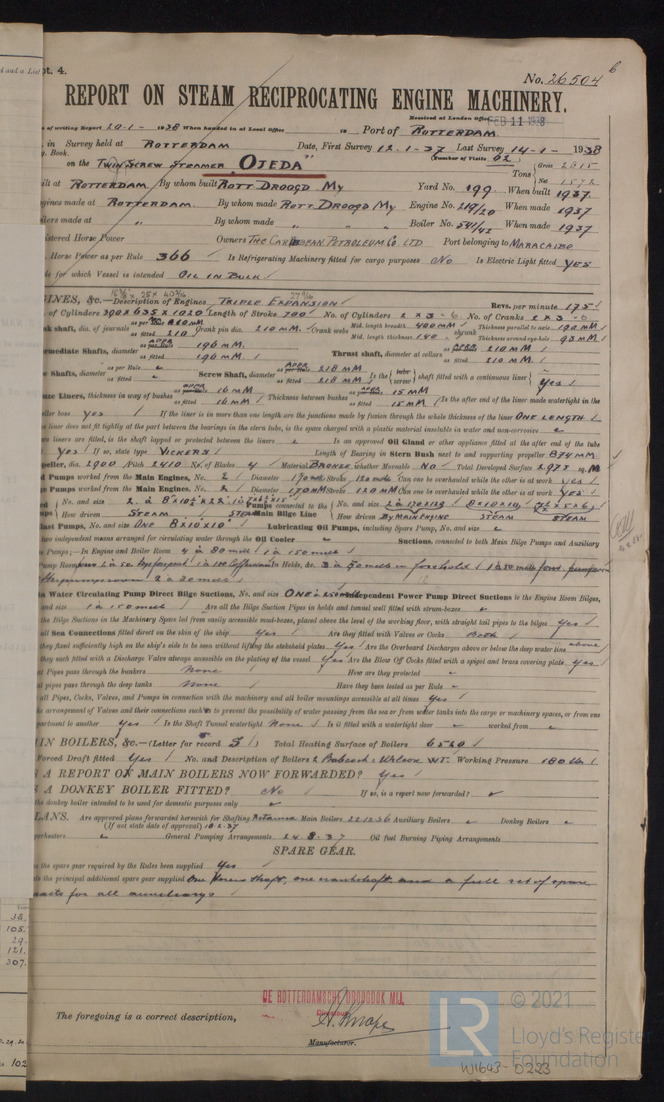 pt. 4.
No. 26504
6
REPORT ON STEAM RECIPROCATING ENGINE MACHINERY.
Received at London Office FEB 11 1938
of writing Report 20-1- 1938 When handed in at Local Office 19 Port of ROTTERDAM
in Survey held at ROTTERDAM Date, First Survey 12-1-37 Last Survey 14-1- 1938
g. Book. (Number of Visits 62)
on the TWIN SCREW STEAMER "OJEDA" Tons Gross 2815 Net 1572
ilt at ROTTERDAM By whom built ROTT DROOGD MY Yard No. 199 When built 1937
ngines made at ROTTERDAM By whom made ROTT DROOGD MY Engine No. 219/20 When made 1937
oilers made at " By whom made " " " Boiler No. 541/42 When made 1937
istered Horse Power Owners THE CARIBBEAN PETROLEUM Co LTD Port belonging to MARACAIBO
Horse Power as per Rule 366 Is Refrigerating Machinery fitted for cargo purposes NO Is Electric Light fitted YES
de for which Vessel is intended OIL IN BULK
GINES, &c.—Description of Engines TRIPLE EXPANSION Revs. per minute 175
of Cylinders 390 x 635 x 1020 Length of Stroke 700 No. of Cylinders 2 x 3 - 6 No. of Cranks 2 x 3 - 6
nk shaft, dia. of journals as fitted 210 Crank pin dia. 210 MM. Crank webs Mid. length breadth 400 MM shrunk Thickness parallel to axis 130 MM
Mid. length thickness 140 Thickness around eye-hole 93 MM
ermediate Shafts, diameter APPR 196 MM. Thrust shaft, diameter at collars APPR 210 MM
as fitted 196 MM. as fitted 210 MM.
e Shafts, diameter as per Rule as fitted Screw Shaft, diameter APPR 218 MM as fitted 218 MM Is the tube screw shaft fitted with a continuous liner Yes
nze Liners, thickness in way of bushes APPR 16 MM as fitted 16 MM Thickness between bushes APPR 15 MM as fitted 15 MM Is the after end of the liner made watertight in the
eller boss yes If the liner is in more than one length are the junctions made by fusion through the whole thickness of the liner ONE LENGTH
e liner does not fit tightly at the part between the bearings in the stern tube, is the space charged with a plastic material insoluble in water and non-corrosive
wo liners are fitted, is the shaft lapped or protected between the liners Is an approved Oil Gland or other appliance fitted at the after end of the tube
YES If so, state type VICKERS Length of Bearing in Stern Bush next to and supporting propeller 874 MM.
peller, dia. 2900 Pitch 2410 No. of Blades 4 Material BRONZE whether Moveable NO Total Developed Surface 2.973 sq. M
d Pumps worked from the Main Engines, No. 2 Diameter 170 MM Stroke 120 MM Can one be overhauled while the other is at work yes
ge Pumps worked from the Main Engines, No. 2 Diameter 170 MM Stroke 120 MM Can one be overhauled while the other is at work YES
No. and size Pumps connected to the Main Bilge Line No. and size 2 à 170x120 8x10x10
How driven STEAM STEAM How driven BY MAIN ENGINE STEAM STEAM
last Pumps, No. and size ONE 8"x10"x10" Lubricating Oil Pumps, including Spare Pump, No. and size
two independent means arranged for circulating water through the Oil Cooler Suctions, connected to both Main Bilge Pumps and Auxiliary
e Pumps;—In Engine and Boiler Room 4 à 80 mm 1 à 150 mm
Pump Room In Holds, &c. 3 à 50 mm in forehold
n Water Circulating Pump Direct Bilge Suctions, No. and size ONE à 250 mm Independent Power Pump Direct Suctions to the Engine Room Bilges,
and size 1 à 150 mm Are all the Bilge Suction Pipes in holds and tunnel well fitted with strum-boxes
the Bilge Suctions in the Machinery Space led from easily accessible mud-boxes, placed above the level of the working floor, with straight tail pipes to the bilges Yes
all Sea Connections fitted direct on the skin of the ship Yes Are they fitted with Valves or Cocks Both
they fixed sufficiently high on the ship's side to be seen without lifting the stokehold plates Yes Are the Overboard Discharges above or below the deep water line above
they each fitted with a Discharge Valve always accessible on the plating of the vessel Yes Are the Blow Off Cocks fitted with a spigot and brass covering plate yes
at Pipes pass through the bunkers None How are they protected
at pipes pass through the deep tanks None Have they been tested as per Rule
all Pipes, Cocks, Valves, and Pumps in connection with the machinery and all boiler mountings accessible at all times Yes
he arrangement of Valves and their connections such as to prevent the possibility of water passing from the sea or from water tanks into the cargo or machinery spaces, or from one
partment to another Yes Is the Shaft Tunnel watertight None Is it fitted with a watertight door worked from
IN BOILERS, &c.—(Letter for record S) Total Heating Surface of Boilers 6520
Forced Draft fitted Yes No. and Description of Boilers 2 Babcock & Wilcox WT. Working Pressure 180 lbs
S A REPORT ON MAIN BOILERS NOW FORWARDED? Yes
S A DONKEY BOILER FITTED? No If so, is a report now forwarded?
the donkey boiler intended to be used for domestic purposes only
LANS. Are approved plans forwarded herewith for Shafting Retained Main Boilers 22.12.36 Auxiliary Boilers Donkey Boilers
(If not state date of approval) 18.2.37
perheaters General Pumping Arrangements 24.8.37 Oil fuel Burning Piping Arrangements
SPARE GEAR.
as the spare gear required by the Rules been supplied Yes
te the principal additional spare gear supplied One screw shaft, one crankshaft and a full set of spare
parts for all auxiliarys
DE ROTTERDAMSCHE DROOGDOK MIJ.
Directeur.
The foregoing is a correct description,
Manufacturer.
LR
© 2021
Lloyd's Register
Foundation
W1643-0223
38.
105.
29.
121.
307.
102